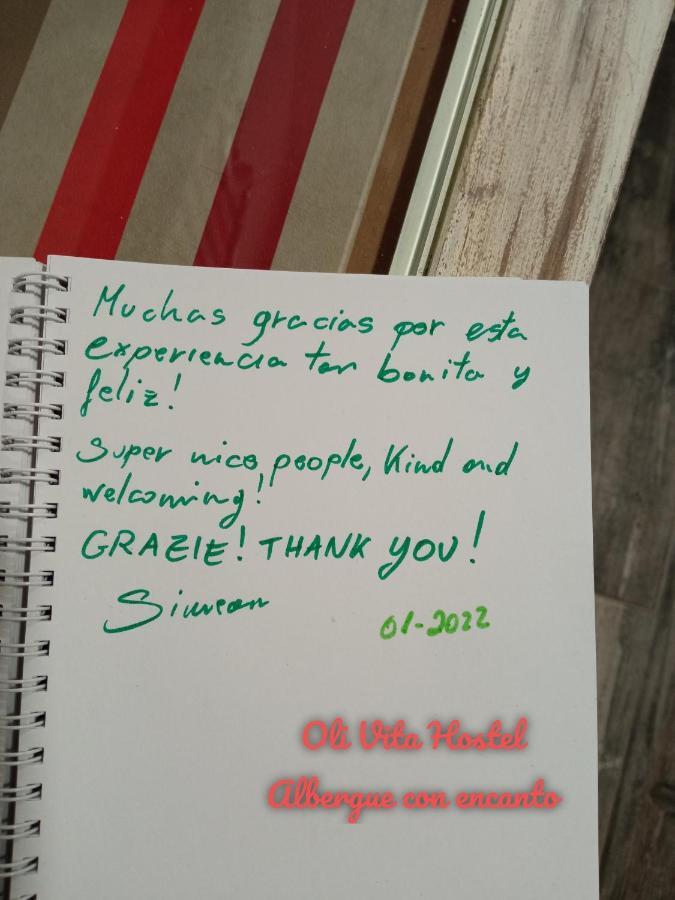 Muchas gracias por esta
experiencia tan bonita y
feliz!
Super nice people, kind and
welcoming!
GRAZIE! THANK YOU!
Simeon
01-2022
Oli Vita Hostel
Albergue con encanto